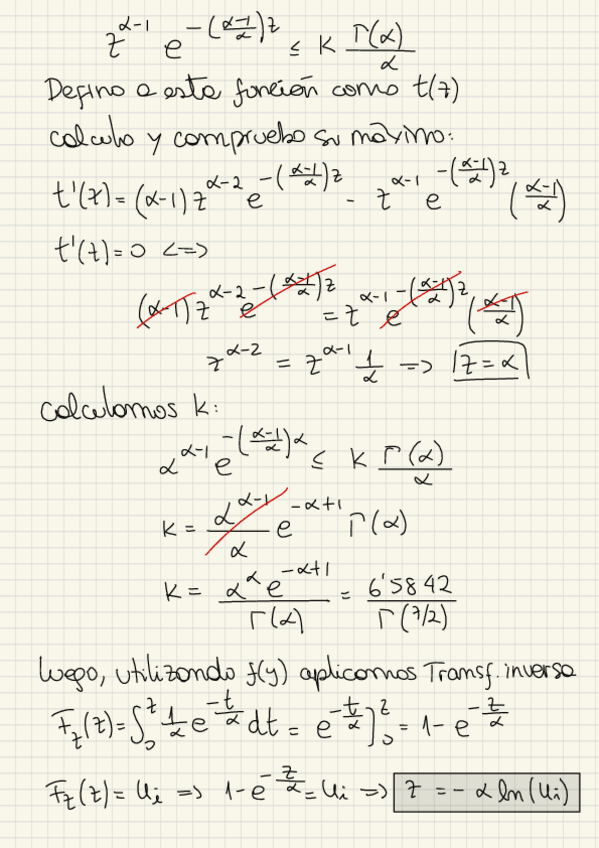 z^(α-1) e^(-((α-1)/α)z) ≤ K Γ(α)/α
Defino a esta función como t(z)
calculo y compruebo su máximo:
t'(z) = (α-1) z^(α-2) e^(-((α-1)/α)z) - z^(α-1) e^(-((α-1)/α)z) ((α-1)/α)
t'(z) = 0 <=>
(α-1) z^(α-2) e^(-((α-1)/α)z) = z^(α-1) e^(-((α-1)/α)z) ((α-1)/α)
z^(α-2) = z^(α-1) 1/α => z = α
Calculamos K:
α^(α-1) e^(-((α-1)/α)α) ≤ K Γ(α)/α
K = α^(α-1)/α e^(-α+1) Γ(α)
K = α^α e^(-α+1) / Γ(α) = 6'5842 / Γ(7/2)
luego, utilizando f(y) aplicamos Transf. inversa
F_z(z) = ∫_0^z 1/α e^(-t/α) dt = e^(-t/α) ]_0^z = 1 - e^(-z/α)
F_z(z) = u_i => 1 - e^(-z/α) = u_i => z = - α ln(u_i)